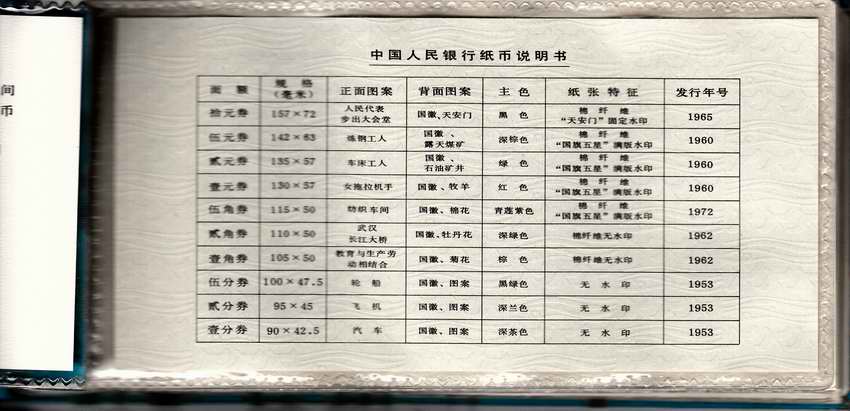 间
币
中国人民银行纸币说明书
面 额 规 格（毫米） 正面图案 背面图案 主 色 纸 张 特 征 发行年号
拾元券 157×72 人民代表步出大会堂 国徽、天安门 黑 色 棉 纤 维“天安门”固定水印 1965
伍元券 142×63 炼钢工人 国徽、露天煤矿 深棕色 棉 纤 维“国旗五星”满版水印 1960
贰元券 135×57 车床工人 国徽、石油矿井 绿 色 棉 纤 维“国旗五星”满版水印 1960
壹元券 130×57 女拖拉机手 国徽、牧羊 红 色 棉 纤 维“国旗五星”满版水印 1960
伍角券 115×50 纺织车间 国徽、棉花 青莲紫色 棉 纤 维“国旗五星”满版水印 1972
贰角券 110×50 武汉长江大桥 国徽、牡丹花 深绿色 棉纤维无水印 1962
壹角券 105×50 教育与生产劳动相结合 国徽、菊花 棕 色 棉纤维无水印 1962
伍分券 100×47.5 轮 船 国徽、图案 黑绿色 无 水 印 1953
贰分券 95×45 飞 机 国徽、图案 深兰色 无 水 印 1953
壹分券 90×42.5 汽 车 国徽、图案 深茶色 无 水 印 1953